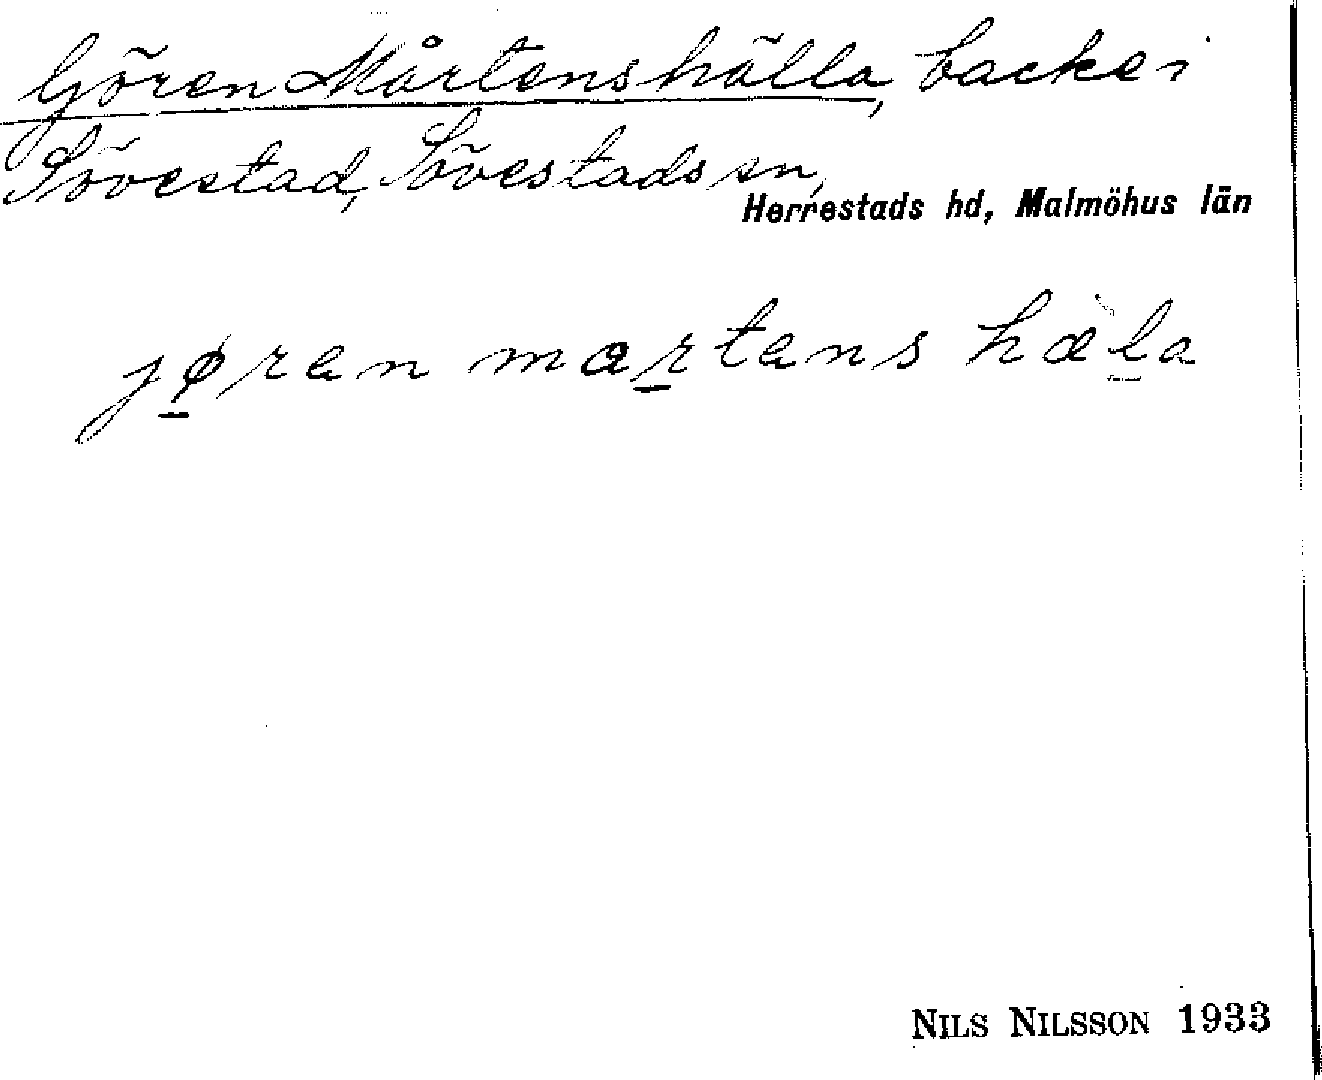 Gören Mårtens hälla, backe i
Sövestad, Sövestads sn,
Herrestads hd, Malmöhus län
jøren martens hæla
NILS NILSSON 1933